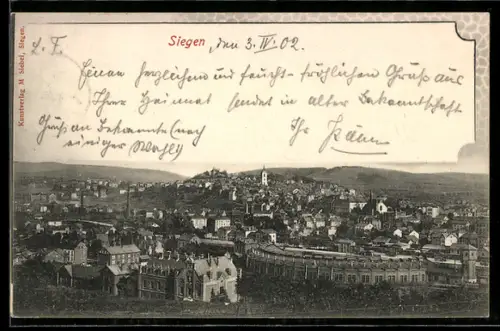 Kunstverlag M. Siebel, Siegen.
Siegen, den 3. IV. 02.
L. F.
Einen herzlichen und feucht-fröhlichen Gruß aus
Ihrer Heimat sendet in alter Bekanntschaft
Ihr
Gruß an Bekannte (nach
einiger Wahl)